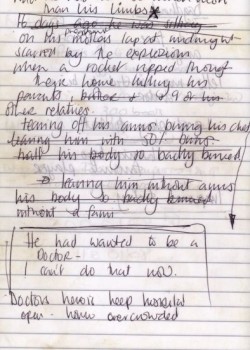 than his limbs
16 days ago he was sitting
on his mothers lap at midnight
scarred by the explosions
when a rocket ripped through
there home killing his
parents, brother & 9 of his
other relatives
tearing off his arms burning his chest
leaving him with 50% burns
half his body so badly burned
leaving him without arms
his body so badly burned
without
He had wanted to be a
Doctor -
I can't do that now.
Doctors heroic keep hospital
open - overcrowded